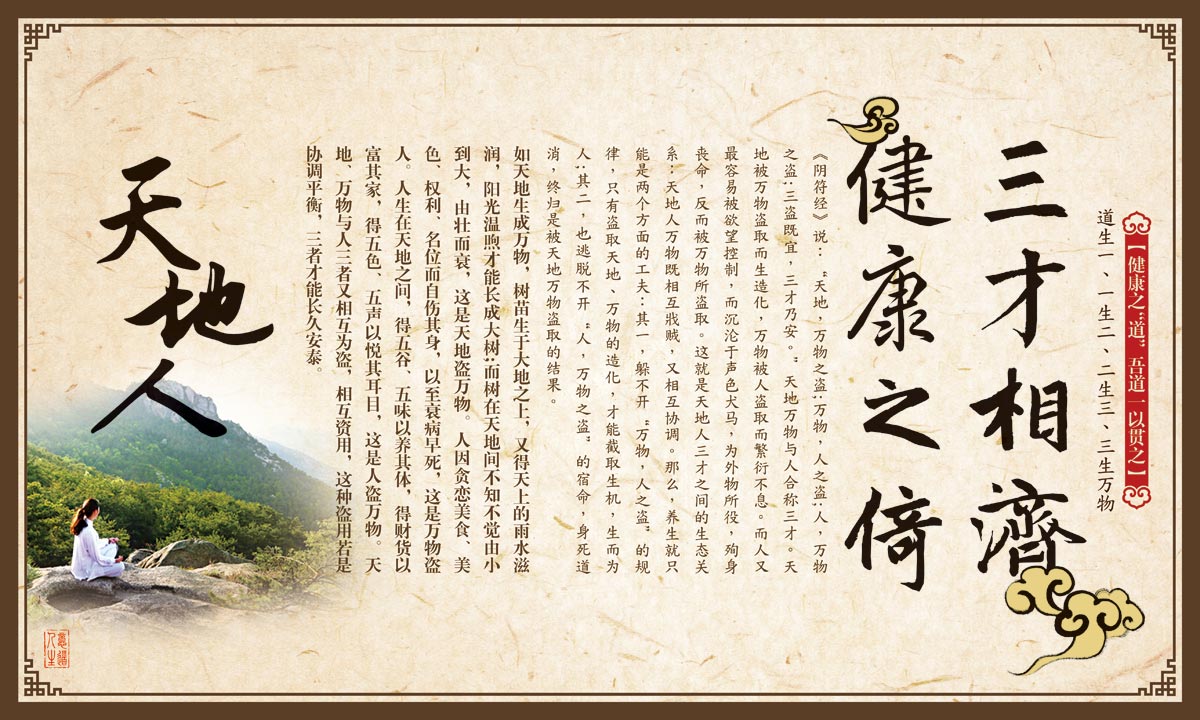 【健康之“道” 吾道一以贯之】
道生一、一生二、二生三、三生万物
三才相濟
健康之倚
《阴符经》说：“天地，万物之盗；万物，人之盗；人，万物
之盗；三盗既宜，三才乃安。”天地万物与人合称三才。天
地被万物盗取而生造化，万物被人盗取而繁衍不息。而人又
最容易被欲望控制，而沉沦于声色犬马，为外物所役，殉身
丧命，反而被万物所盗取。这就是天地人三才之间的生态关
系：天地人万物既相互戕贼，又相互协调。那么，养生就只
能是两个方面的工夫：其一，躲不开“万物，人之盗”的规
律，只有盗取天地、万物的造化，才能截取生机，生而为
人；其二，也逃脱不开“人，万物之盗”的宿命，身死道
消，终归是被天地万物盗取的结果。
如天地生成万物，树苗生于大地之上，又得天上的雨水滋
润，阳光温煦才能长成大树；而树在天地间不知不觉由小
到大，由壮而衰，这是天地盗万物。人因贪恋美食、美
色、权利、名位而自伤其身，以至衰病早死，这是万物盗
人。人生在天地之间，得五谷、五味以养其体，得财货以
富其家，得五色、五声以悦其耳目，这是人盗万物。天
地、万物与人三者又相互为盗，相互资用，这种盗用若是
协调平衡，三者才能长久安泰。
天地人